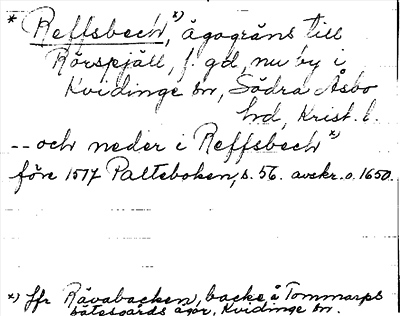 * Reffsbech,*) ägogräns till
Rörspjäll, f. gd, nu by i
Kvidinge sn, Södra Åsbo
hd, Krist. l.
-- och neder i Reffsbech*)
före 1517 Palteboken, s. 56. avskr. o. 1650.
*) Jfr Rävabacken, backe å Tommarps
bätesgårds ägor, Kvidinge sn.